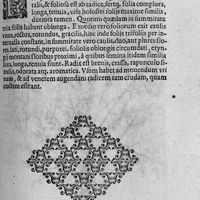 talis, & foliosa est ab radice, sertq́. folia complura,
longa, tenuia, visu holostei foliis maxime similia,
duriora tamen. Quorum quædam in summitate
tria folia habent oblonga. E medio verò foliorum exit caulis
vnus, rectus, rotundus, gracilis, hinc inde foliis trifolii per in-
terualla constans, in summitate vero caulis, duo, aut plures flores,
lutei, rotundi, purpurei, foliolis oblongis circumdati, eryn-
gij montani floribus proximi, in quibus semina itidem similia
lata, longa, sine
odorata atq. aromatica. Vsum habet ad mouendum vri
nam, & ad venerem augendam radicem tam crudam, quam
coctam esitant.